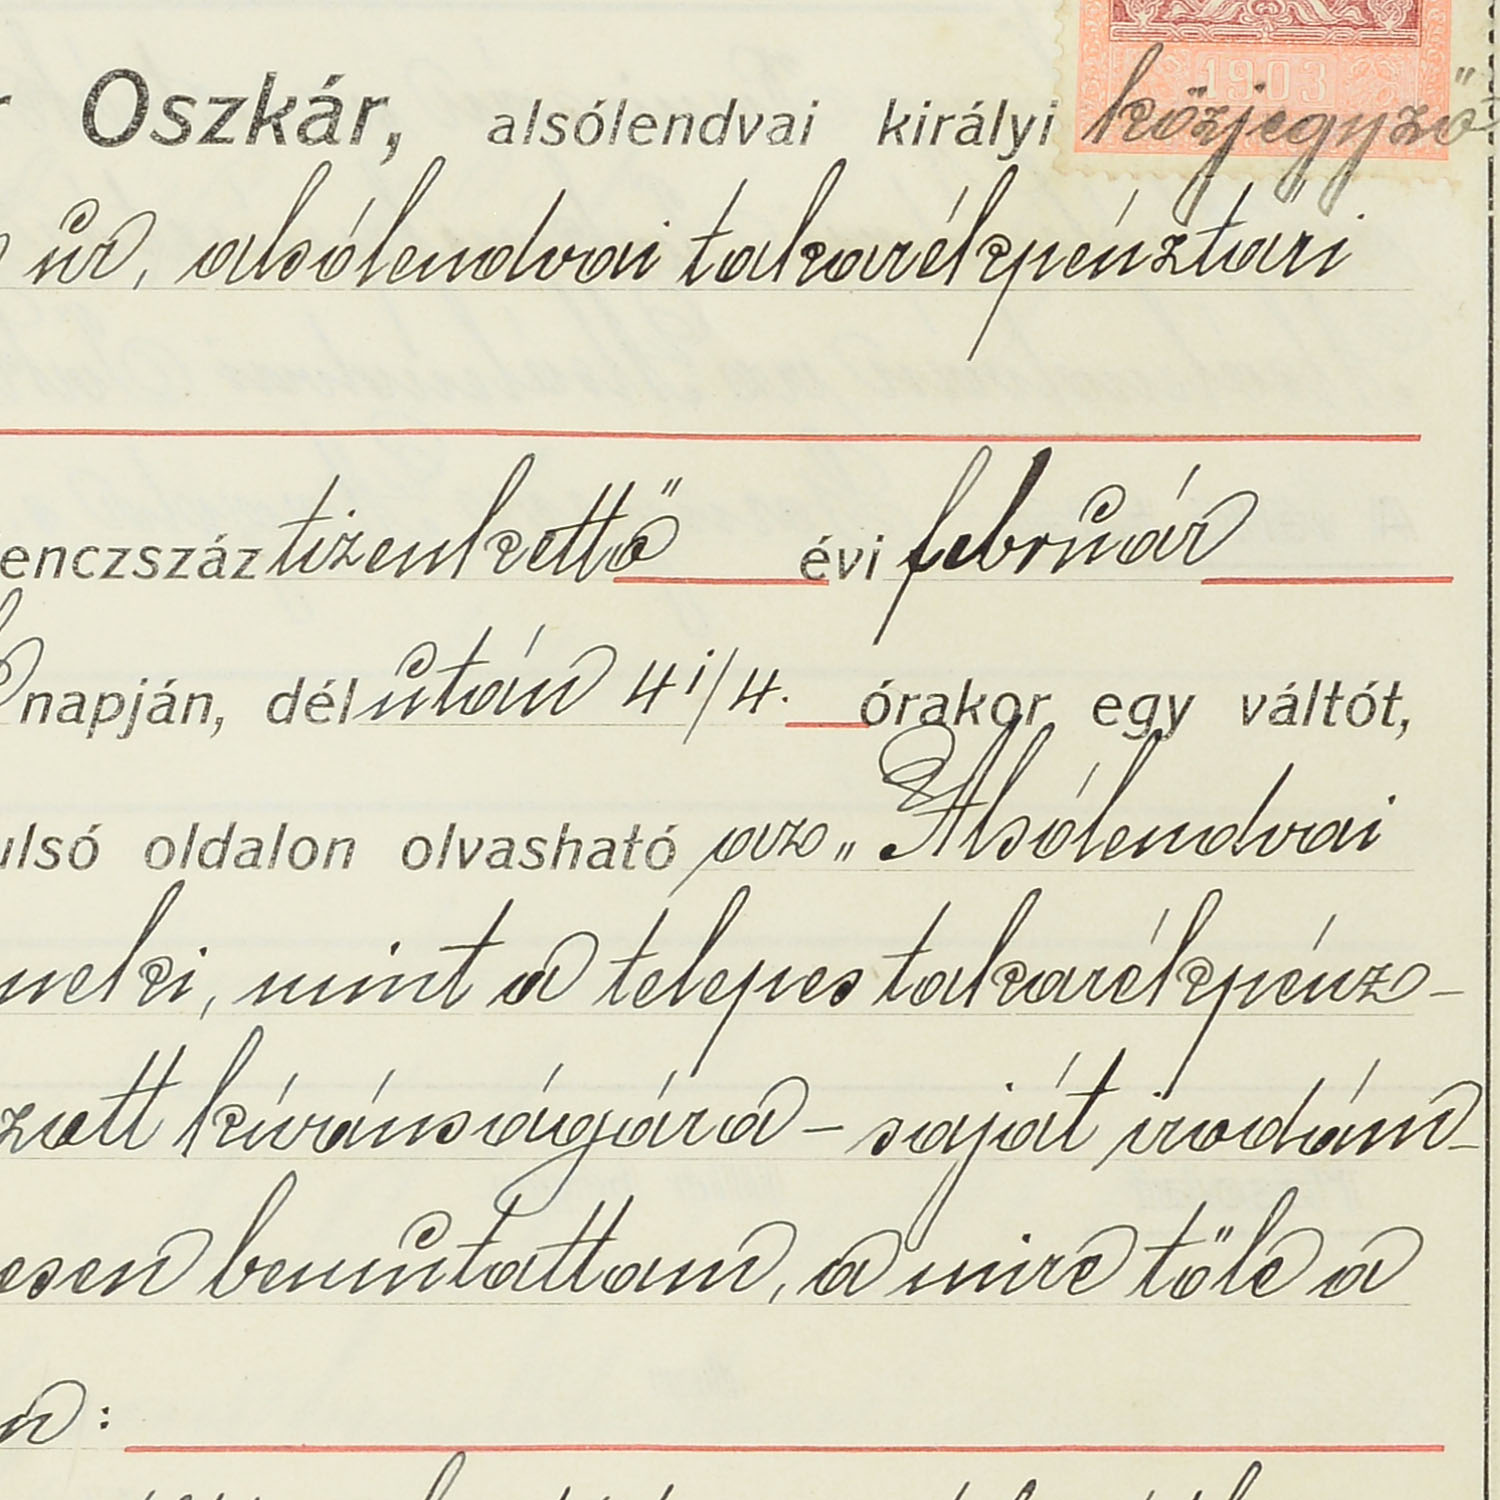 Oszkár, alsólendvai királyi közjegyző
1903
úr, alsólendvai takarékpénztári
enczszáz tizenkettő évi február
napján, délután 4 1/4. órakor egy váltót,
ulsó oldalon olvasható az „Alsólendvai
neki, mint a telepes takarékpénz-
zott kívánságára – saját irodám-
esen bemutattam, a mire tőle a
: